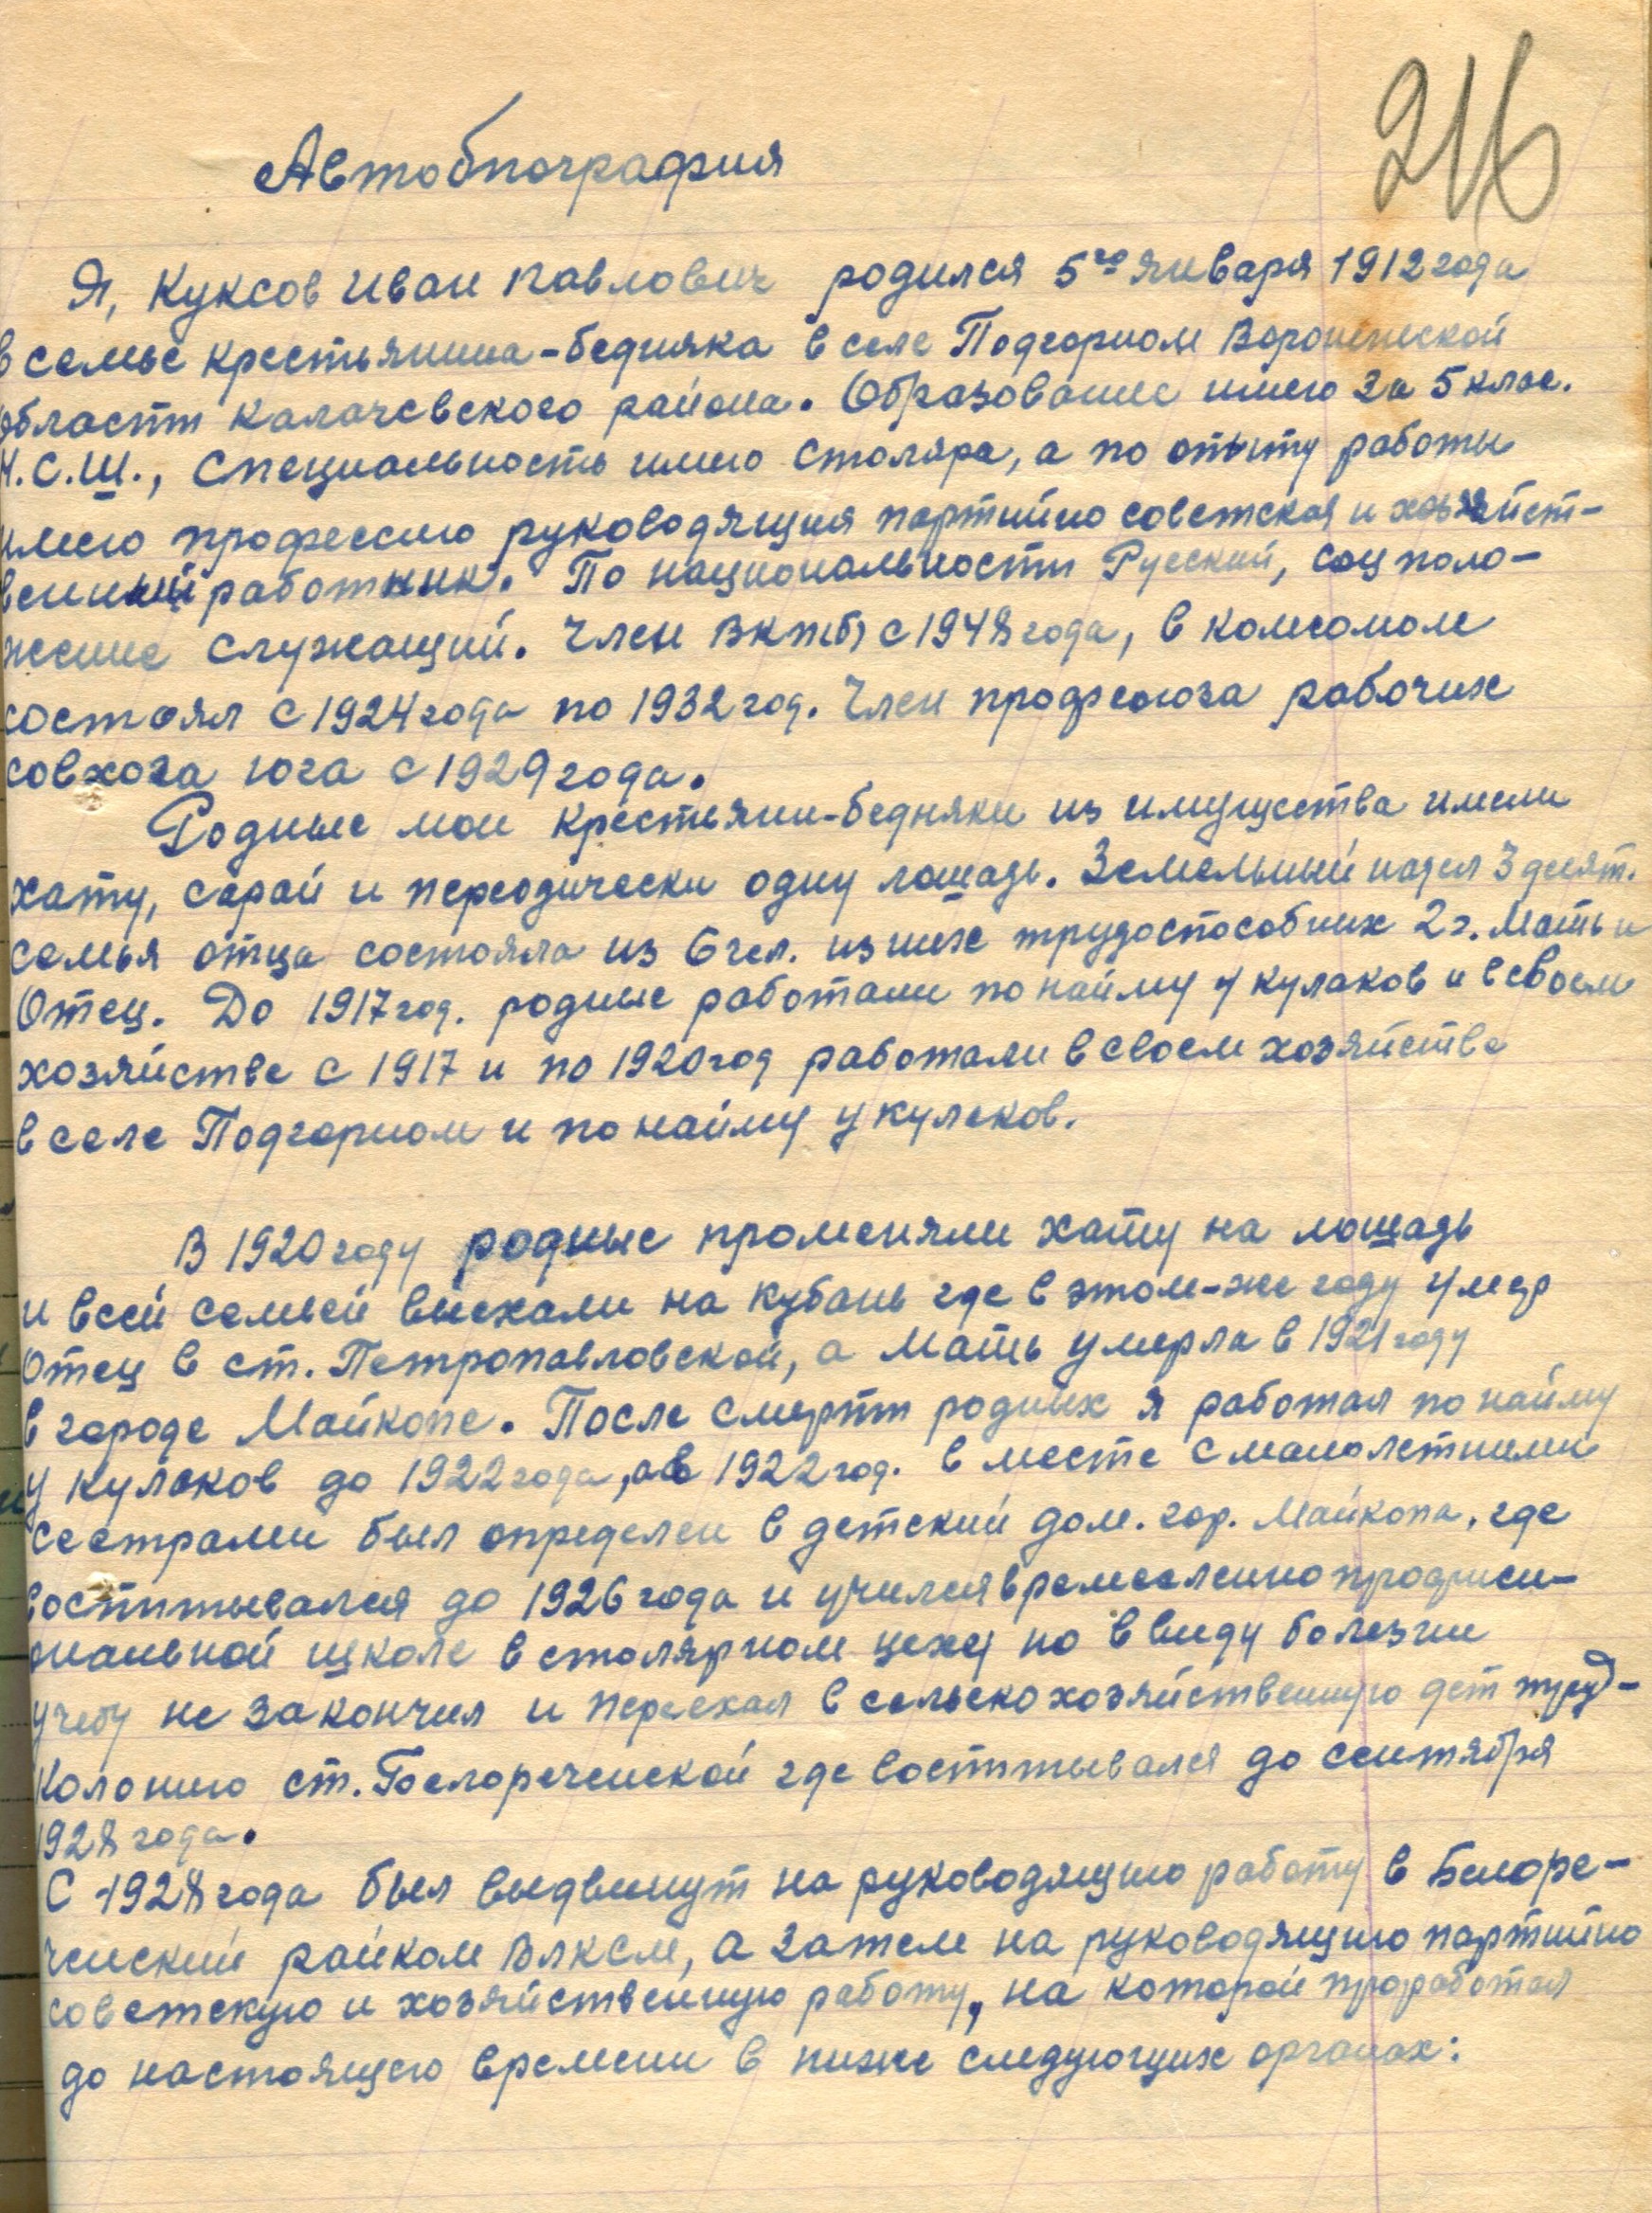 216
Автобиография
Я, Куксов Иван Павлович родился 5го января 1912 года
в семье крестьянина-бедняка в селе Подгорном Воронежской
области Калачевского района. Образование имею за 5 клас.
Н.С.Ш., специальность имею столяра, а по опыту работы
имею профессию руководящия партийно советская и хозяйст-
венный работник. По национальности Русский, соц поло-
жение служащий. Член ВКП(б) с 1948 года, в комсомоле
состоял с 1924 года по 1932 год. Член профсоюза рабочих
совхоза юга с 1929 года.
Родные мои крестьяни-бедняки из имущества имели
хату, сарай и переодически одну лошадь. Земельный надел 3 десят.
семья отца состояла из 6 чел. из них трудоспособних 2 ч. Мать и
Отец. До 1917 год. родные работали по найму у кулаков и в своем
хозяйстве с 1917 и по 1920 год работали в своем хозяйстве
в селе Подгорном и по найму у кулаков.
В 1920 году родные променяли хату на лошадь
и всей семьей выехали на Кубань где в этом-же году умер
Отец в ст. Петропавловской, а Мать умерла в 1921 году
в городе Майкопе. После смерти родных я работал по найму
у кулаков до 1922 года, а в 1922 год. в месте с малолетними
сестрами был определен в детский дом. гор. Майкопа, где
воспитывался до 1926 года и учился в ремесленно профиси-
ональной школе в столярном цеху но в виду болезни
учебу не закончил и переехал в сельскохозяйственную дет труд-
колонию ст. Белореченской где воспитывался до сентября
1928 года.
С 1928 года был выдвинут на руководящию работу в Белоре-
ченский райком ВЛКСМ, а затем на руководящию партийно
советскую и хозяйственную работу, на которой проработал
до настоящего времени в ниже следующих органах: